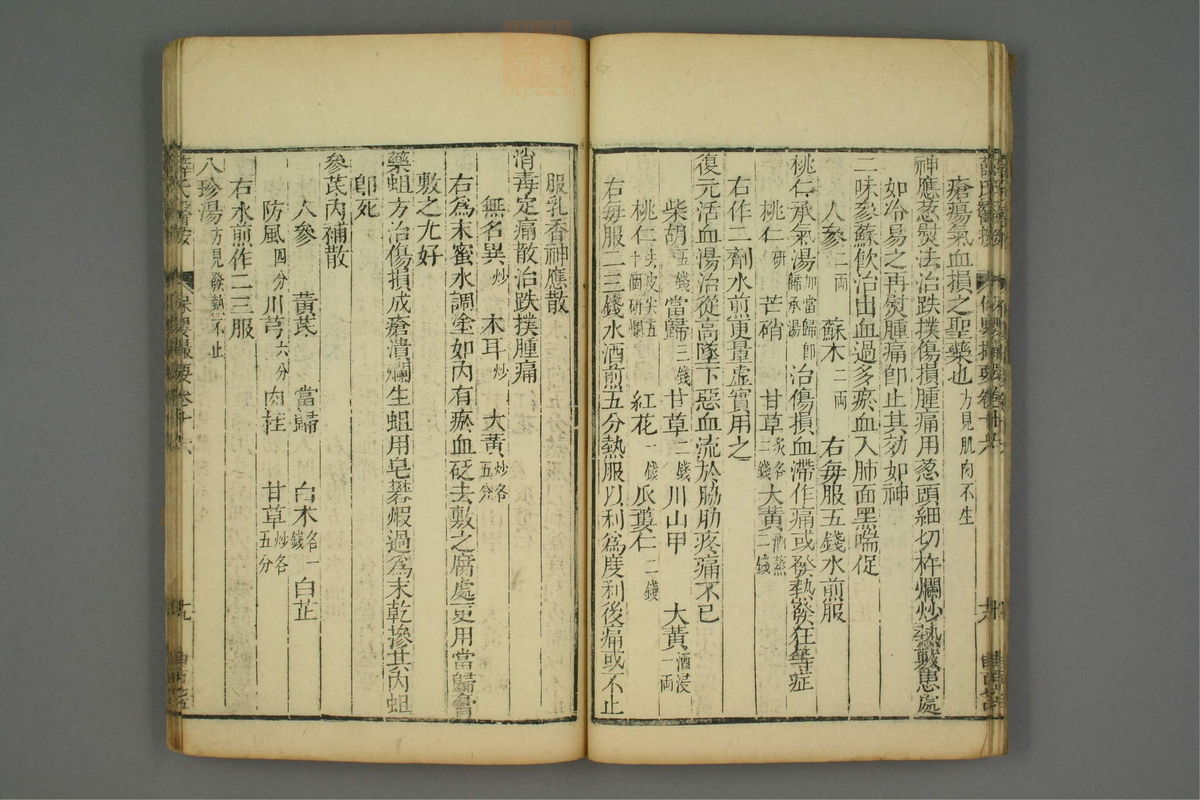 瘡瘍氣血損之聖藥也方見肌肉不生
神應葱熨法治跌撲傷損腫痛用葱頭細切杵爛炒熱敷患處
如冷易之再熨腫痛即止其効如神
二味參蘇飲治出血過多瘀血入肺面黑喘促
人參二兩 蘇木二兩 右每服五錢水煎服
桃仁承氣湯加當歸即歸承湯治傷損血滯作痛或發熱發狂等症
桃仁研 芒硝 甘草炙各二錢 大黃酒蒸二錢
右作二劑水煎更量虛實用之
復元活血湯治從高墜下惡血流於脇肋疼痛不已
柴胡五錢 當歸三錢 甘草二錢 川山甲 大黃酒浸一兩
桃仁去皮尖五十個研爛 紅花一錢 瓜蔞仁二錢
右每服二三錢水酒煎五分熱服以利爲度利後痛或不止
服乳香神應散
消毒定痛散治跌撲腫痛
無名異炒 木耳炒 大黃炒各五分
右爲末蜜水調塗如內有瘀血砭去敷之腐處更用當歸膏
敷之尤好
藥蛆方治傷損成瘡潰爛生蛆用皂礬煆過爲末乾摻其內蛆
即死
參芪內補散
人參 黃芪 當歸 白朮各一錢 白芷
防風四分 川芎六分 肉桂 甘草炒各五分
右水煎作二三服
八珍湯方見發熱不止
薛氏醫按 保嬰撮要 卷十六